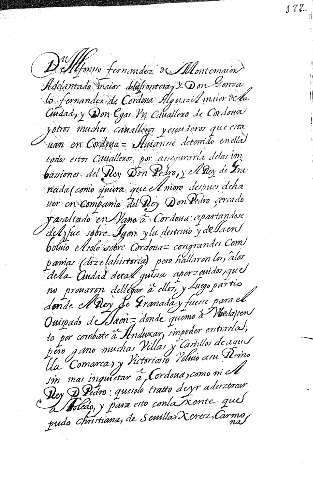 172.
Dn. Alfonso fernandez de Montemaior
Adelantado maior dela frontera, y Don Gonza
lo fernandez de Cordova Alguazil maior de la
Ciudad, y Don Egas Vn Cavallero de Cordova
y otros muchos cavalleros y escuderos que esta
uan en Cordova = Auianse detenido en ella
todos estos Cavalleros, por asegurarla de las in
basiones del Rey Don Pedro, y el Rey de Gra
nada (como quiera que el moro despues de ha
uer en compañia del Rey Don Pedro cercado
y asaltado en Vano a Cordova: apartandose
de fue sobre y la destruio y de
boluio sobre Cordova = con grandes Com
pañias (dize la historia) pero hallaron los, a los
de la Ciudad de tal guisa apercevidos que
no provaron de llegar a ellos, y luego partio
donde el Rey de Granada y fuese para el
Obispado de Jaen = donde quemó a
to por combate a Andujar, sin poder entrarla,
pero gano muchas Villas y Castillos de aque
lla Comarca, y Victorioso Volvio a su Reino
sin mas inquietar a Cordova, como ni el
Rey Dn. Pedro: que solo trato de yr a descercar
a Toledo, y para esto con la xente que
pudo christiana, de Sevilla, Xerez, Carmo
na